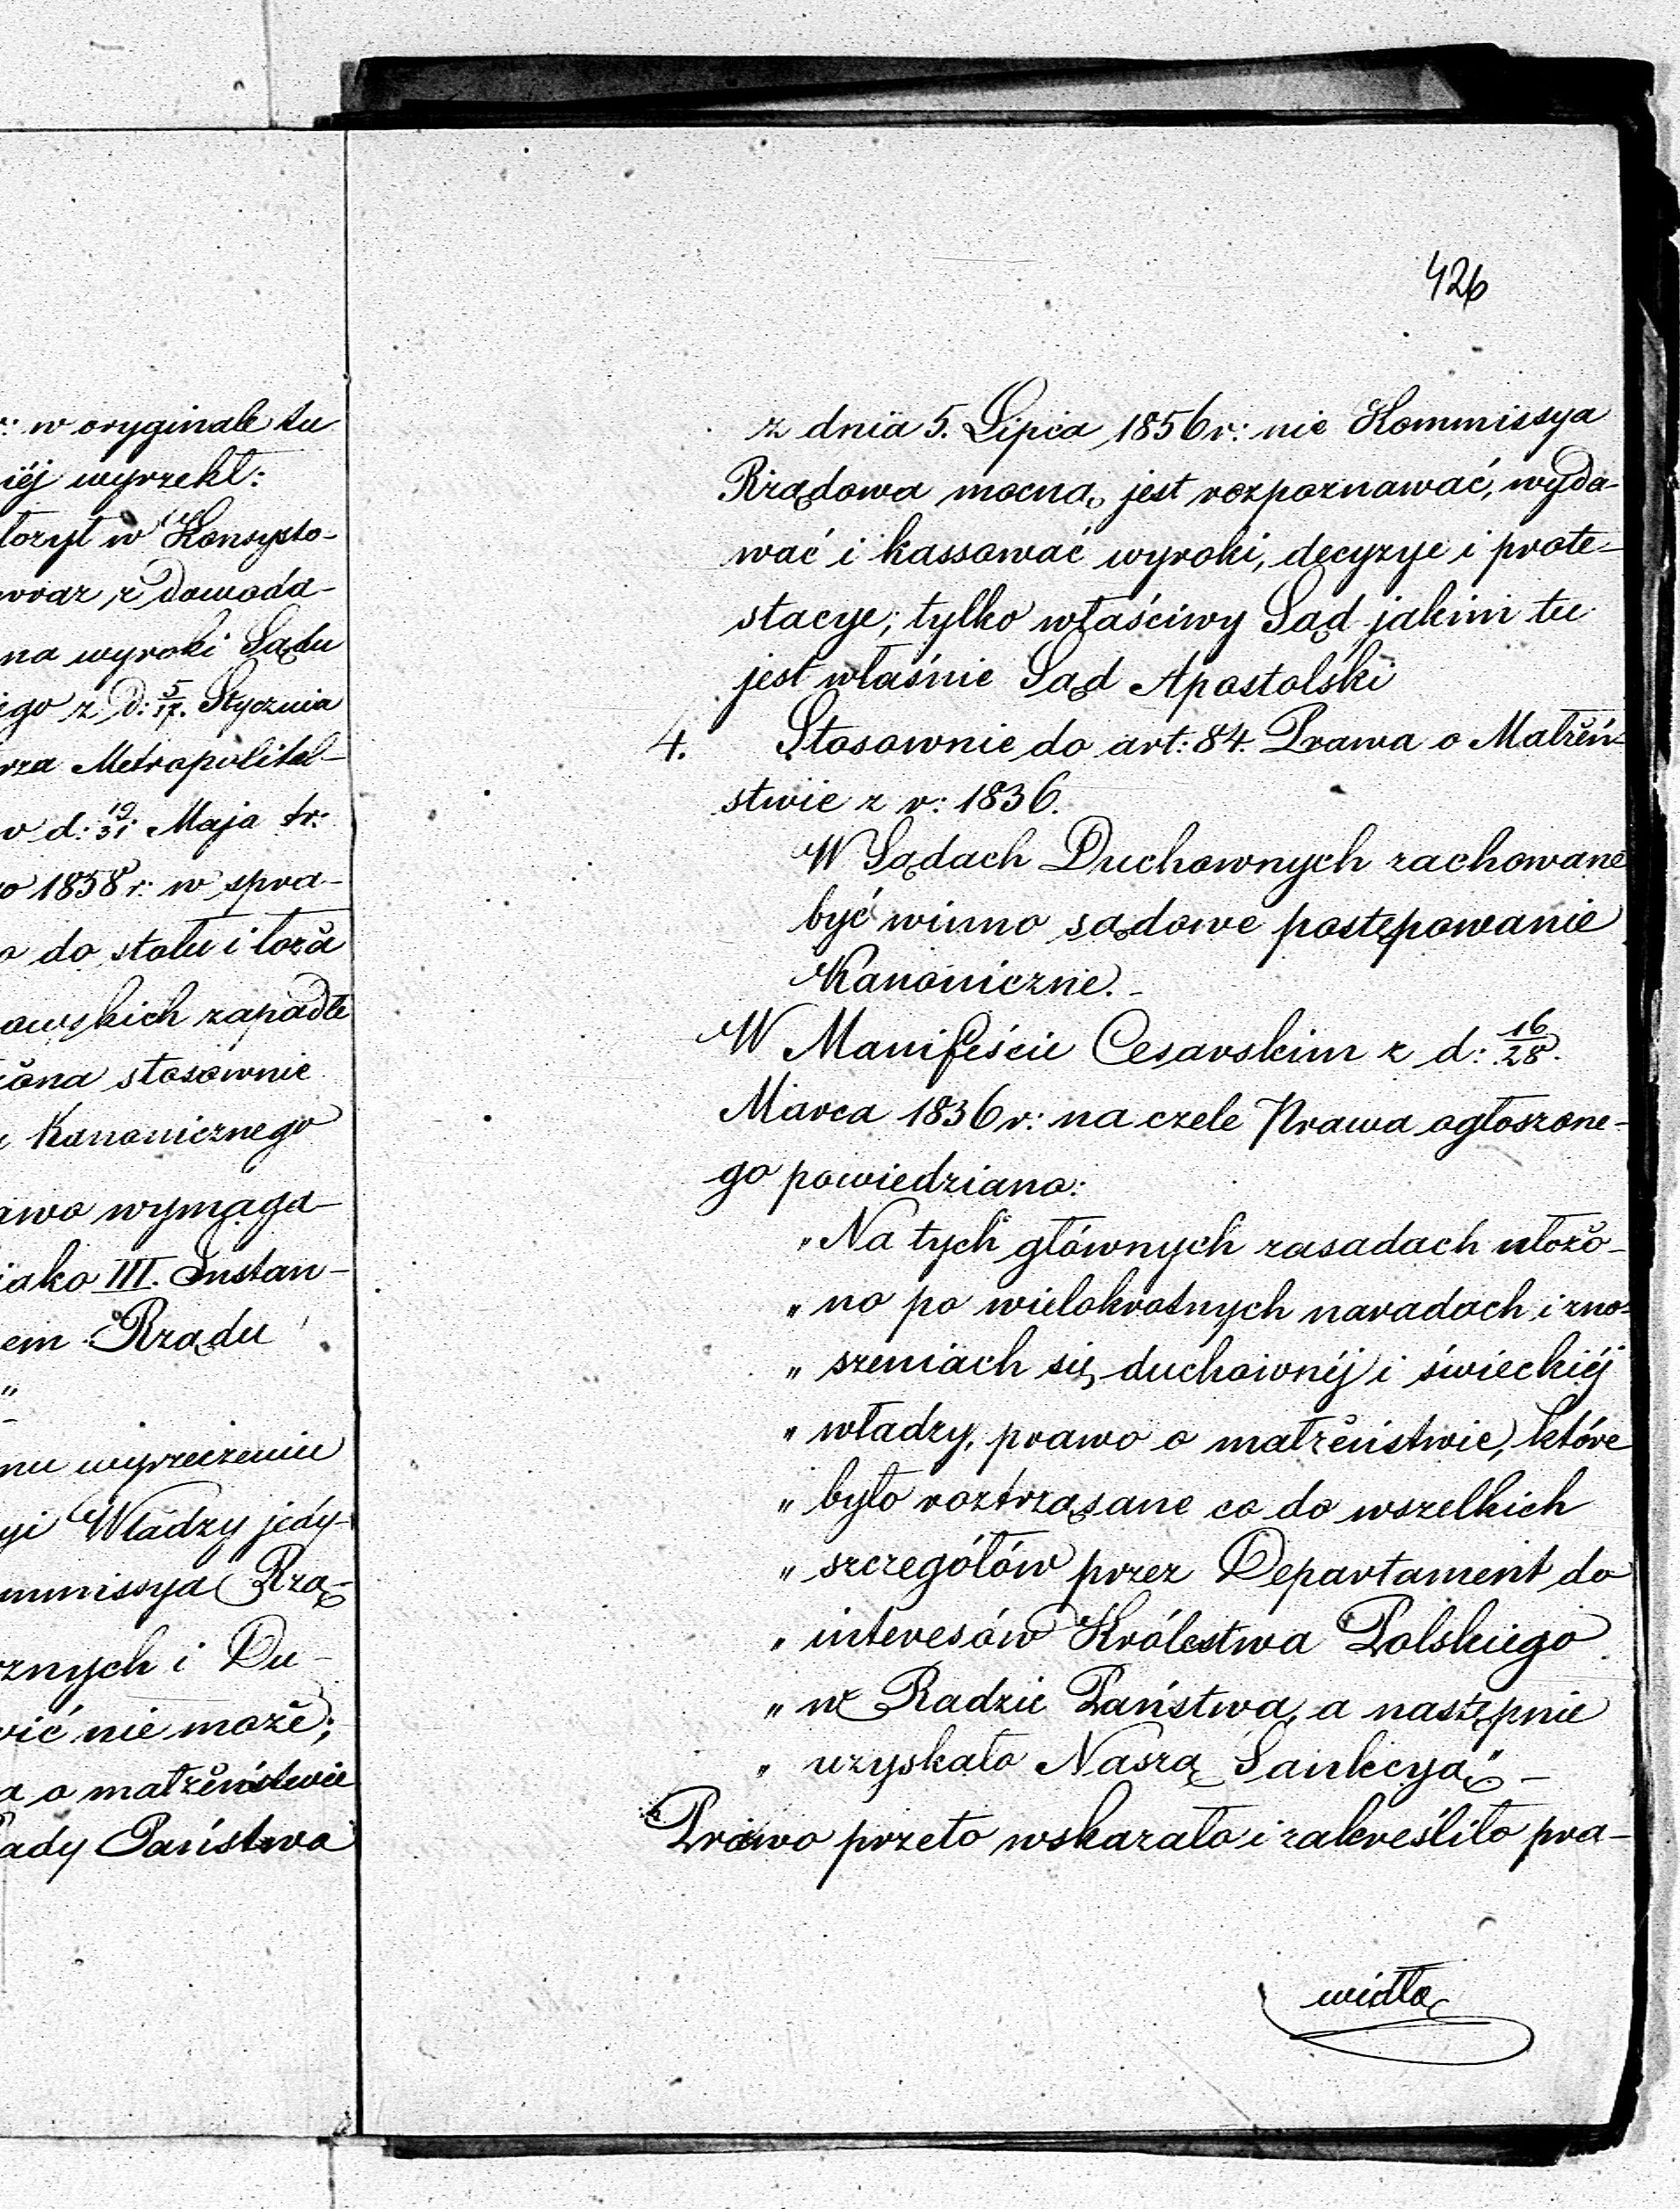 r: w oryginale tu
iéj wyrzekł:
łożył w Konsysto-
wraz z dowoda-
na wyroki Sądu
ego z d: 5/17. Stycznia
rza Metropolital-
w d: 19/31 Maja tr:
o 1858 r: w spra-
o do stołu i łoża
owskich zapadłe
żona stosownie
Kanonicznego
awo wymaga-
jako III. Instan-
em Rządu
"
mu wyrzeczeniu
yi Władzy jedy-
mmissya Rzą-
znych i Du-
wić nie może;
a o małżeństwie
ady Państwa
426
z dnia 5. Lipca 1856 r: nie Kommissya
Rządowa mocną jest rozpoznawać, wyda-
wać i kassować wyroki, decyzye i prote-
stacye; tylko właściwy Sąd jakim tu
jest właśnie Sąd Apostolski
4. Stosownie do art: 84. Prawa o Małżeń-
stwie z r: 1836.
W Sądach Duchownych zachowane
być winno sądowe postępowanie
Kanoniczne. -
W Manifeście Cesarskim z d: 16/28.
Marca 1836 r: na czele Prawa ogłoszone-
go powiedziano:
"Na tych głównych zasadach ułożo-
" no po wielokrotnych naradach i zno-
" szeniach się duchownéj i świeckiéj
" władzy, prawo o małżeństwie, które
" było roztrząsane co do wszelkich
" szczegółów przez Departament do
" interesów Królestwa Polskiego
" w Radzie Państwa, a następnie
" uzyskało Naszą Sankcyą" -
Prawo przeto wskazało i zakreśliło pra-
widła